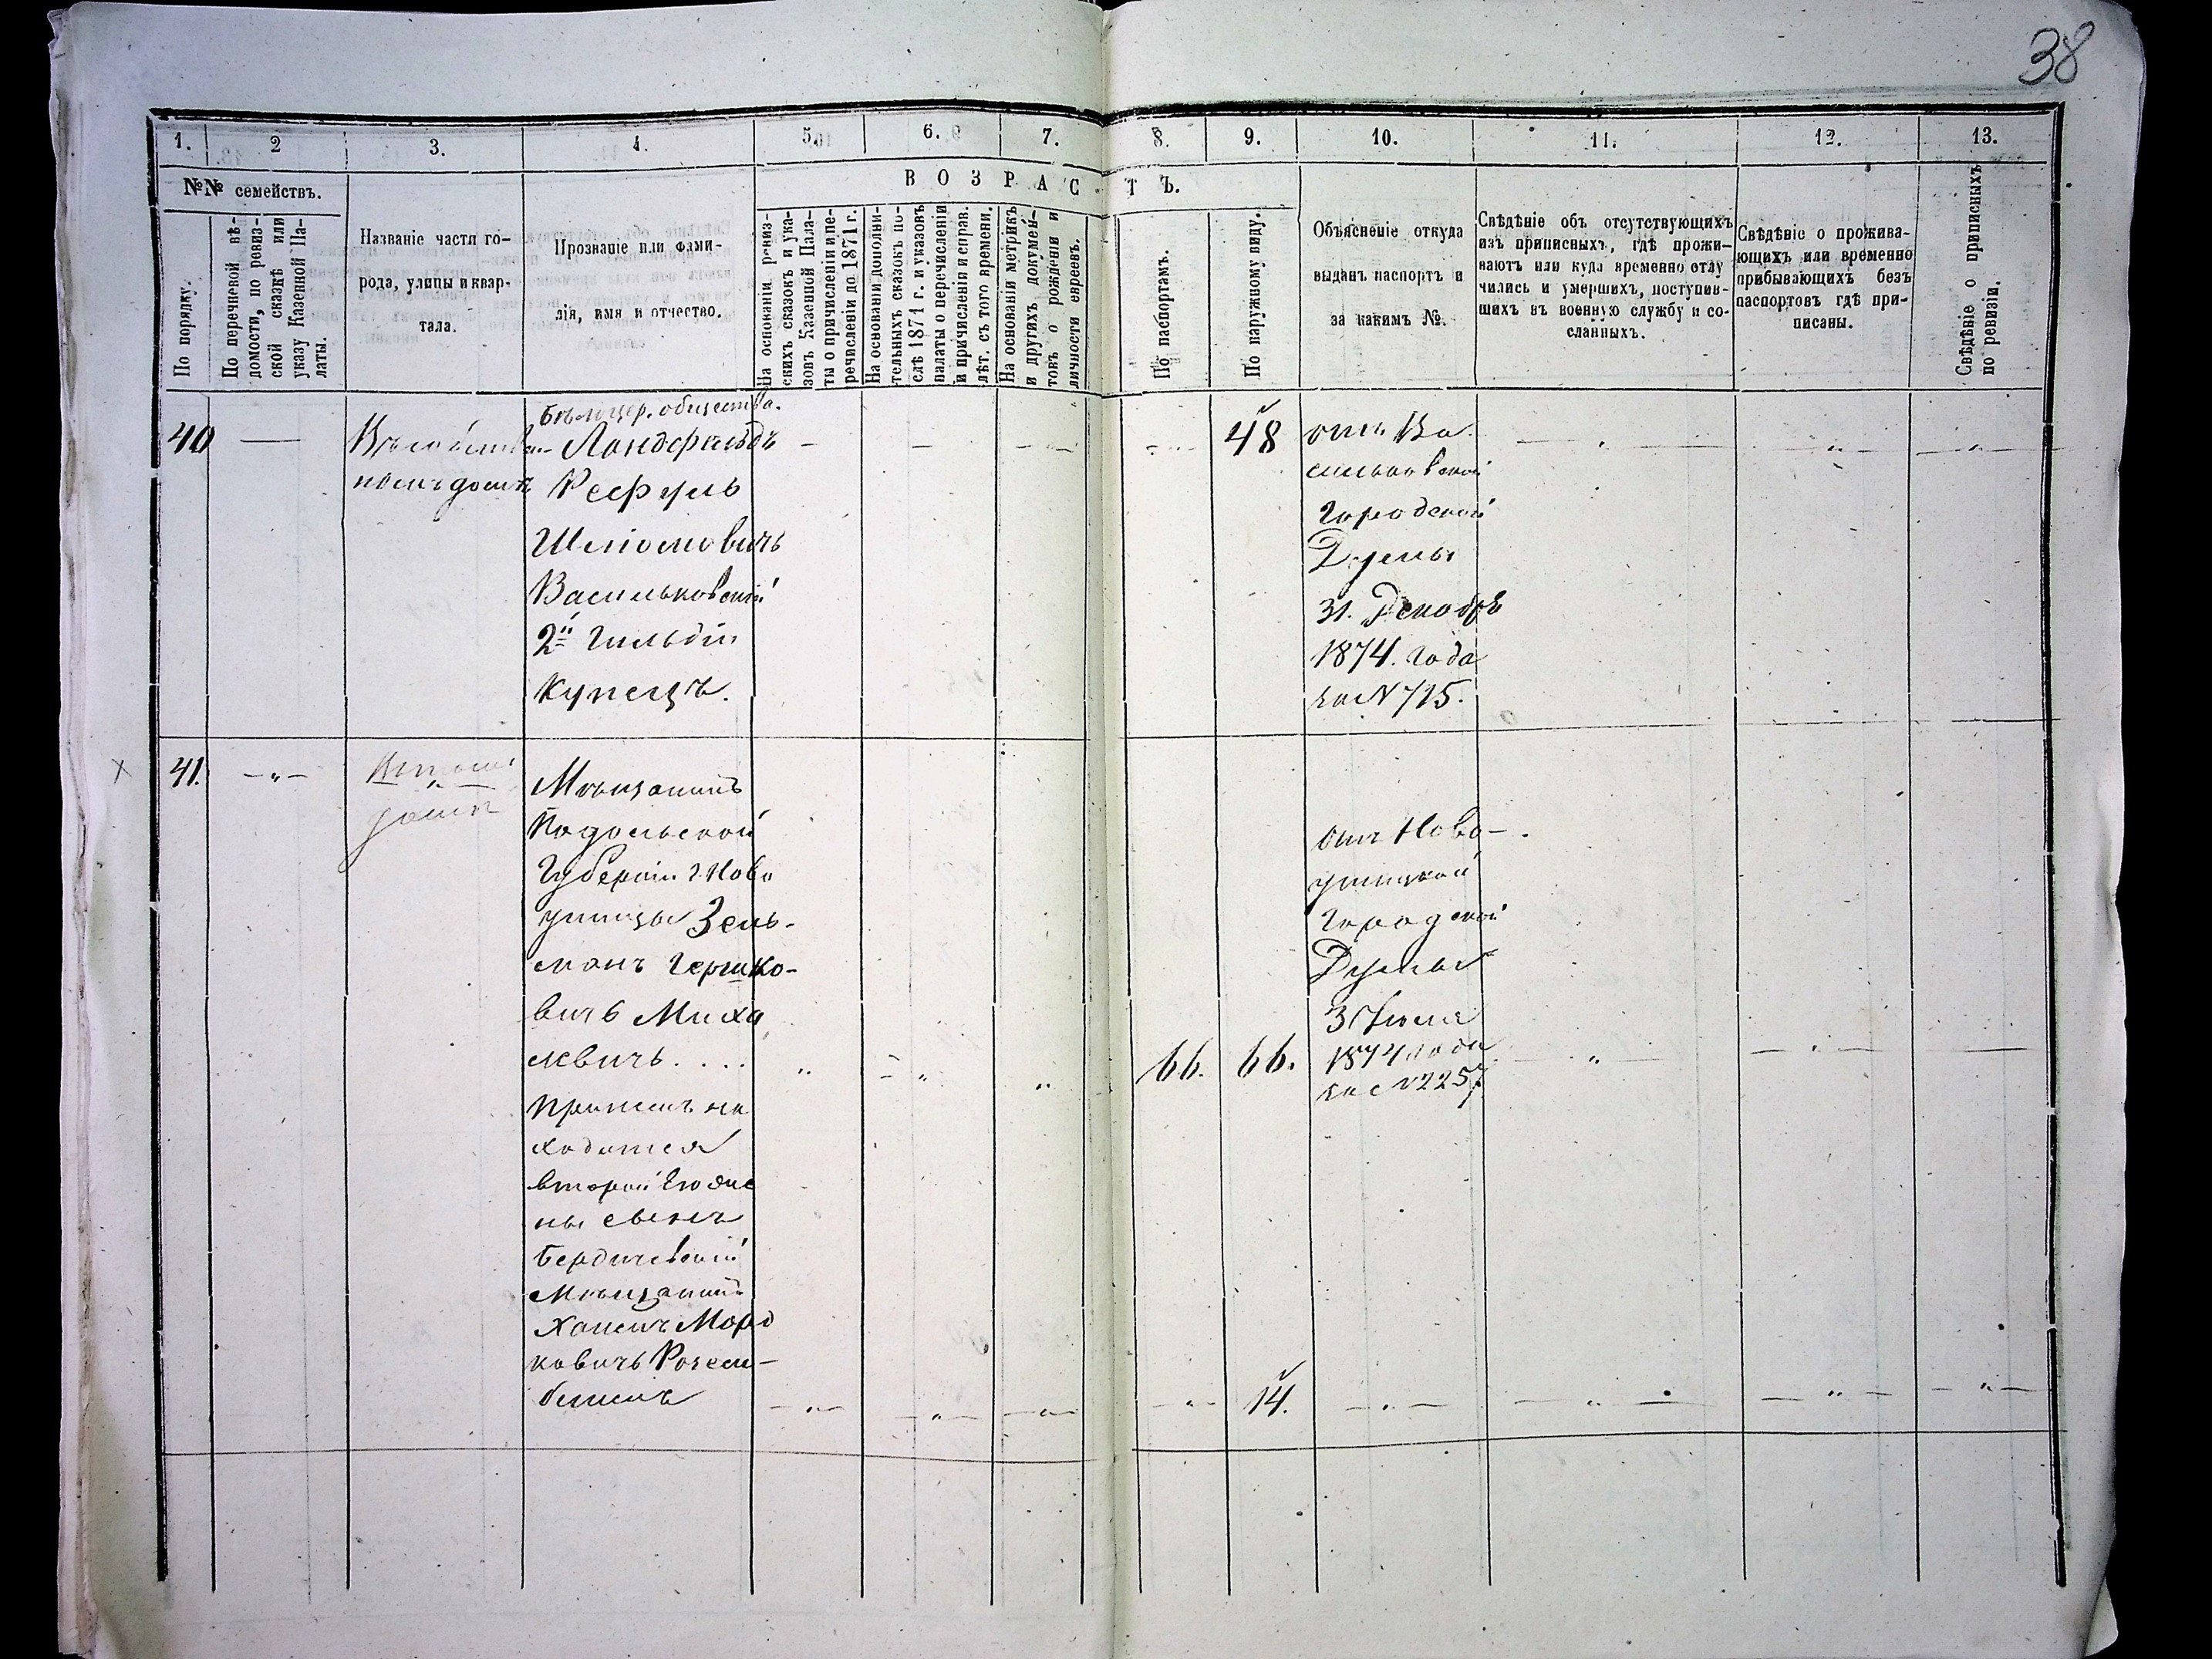 38
1. 2 3. 4. 5. 6. 7. 8. 9. 10. 11. 12. 13.
№№ семействъ.
По порядку.
По перечневой вѣ-
домости, по ревиз-
ской сказкѣ или
указу Казенной Па-
латы.
Названіе части го-
рода, улицы и квар-
тала.
Прозваніе или фами-
лія, имя и отчество.
ВОЗРАСТЪ.
На основаніи ревиз-
скихъ сказокъ и ука-
зовъ Казенной Пала-
ты о причисленіи и пе-
речисленіи до 1871 г.
На основаніи дополни-
тельныхъ сказокъ по-
слѣ 1871 г. и указовъ
палаты о перечисленіи
и причисленіи и справ.
лѣт. съ того времени.
На основаніи метрикъ
и другихъ докумен-
товъ о рожденіи и
личности евреевъ.
По паспортамъ.
По наружному виду.
Объясненіе откуда
выданъ паспортъ и
за какимъ №.
Свѣдѣніе объ отсутствующихъ
изъ приписныхъ, гдѣ прожи-
ваютъ или куда временно отлу
чились и умершихъ, поступив-
шихъ въ военную службу и со-
сланныхъ.
Свѣдѣніе о прожива-
ющихъ или временно
прибывающихъ безъ
паспортовъ гдѣ при-
писаны.
Свѣдѣніе о приписныхъ
по ревизіи.
40
Въ собствен-
номъ домѣ
Бѣлоцер. общества.
Ландфельдъ
Рефуль
Шліомовичъ
Васильковскій
2й Гильдіи
Купецъ.
48
отъ Ва
сильковской
Городской
Думы
31. Декабр
1874. года
за № 715.
41.
домѣ
Мѣщанинъ
Подольской
Губерніи г. Ново
ушицы Зель-
манъ Гершко-
вичъ Миха
левичъ . . . .
При немъ на
ходится
второй его же
ны сынъ
Бердичевскій
Мѣщанинъ
Хаимъ Морд
ковичъ Розен-
66. 66.
отъ Ново-
ушицкой
Городской
Думы
3 Іюля
1874 года
за № 2257.
14.